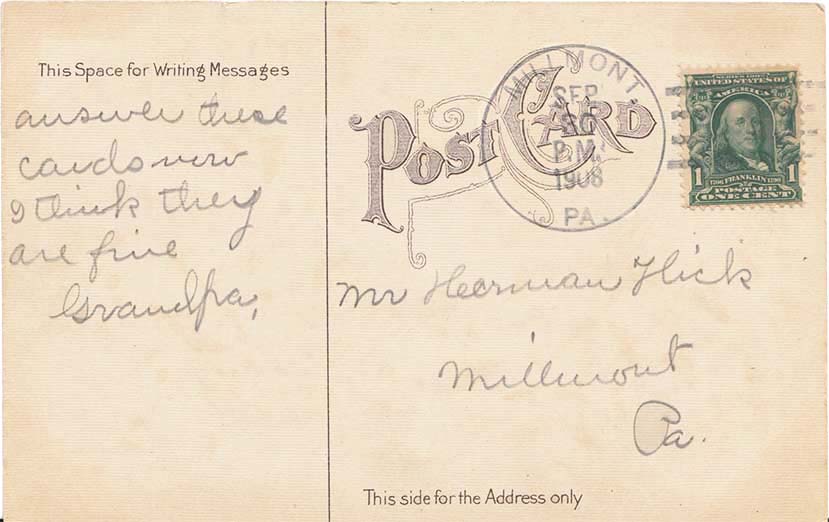 This Space for Writing Messages
answer these
cards now
I think they
are fine
Grandpa,
POST CARD
MILLMONT
SEP
30
P.M.
1908
PA.
SERIES 1902
UNITED STATES OF
AMERICA
1 1706 FRANKLIN 1790 1
POSTAGE
ONE CENT
Mr Herman Flick
Millmont
Pa.
This side for the Address only